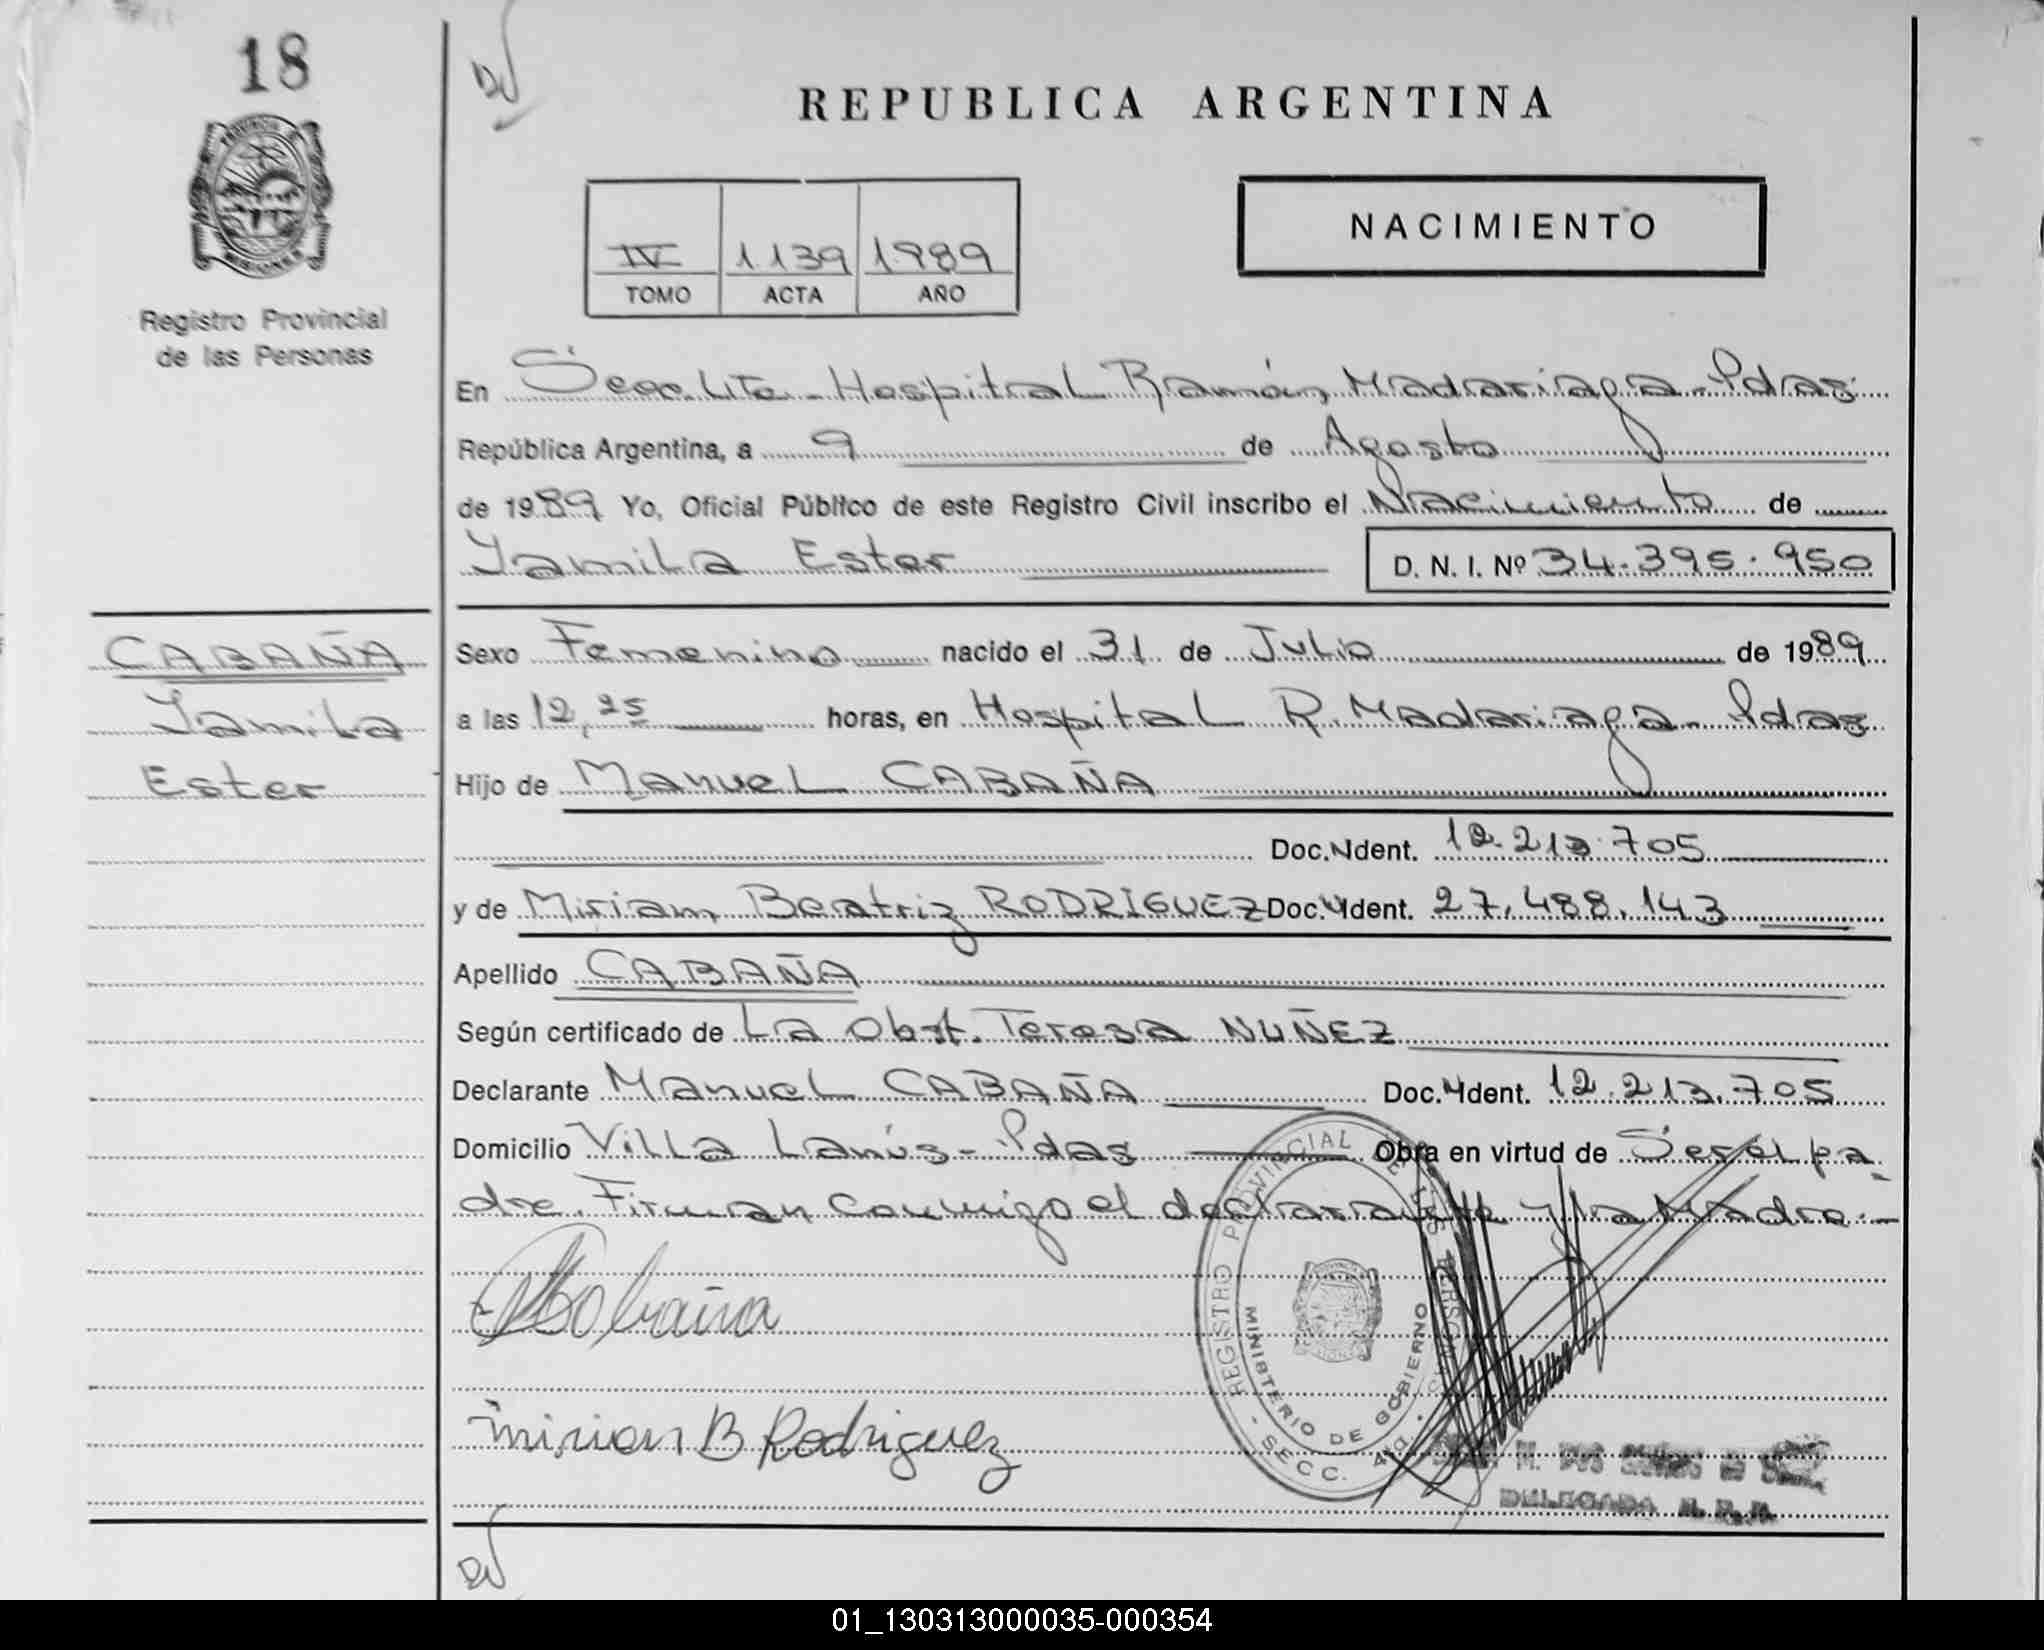 18
REPUBLICA ARGENTINA
NACIMIENTO
IV 1139 1989
TOMO ACTA AÑO
PROVINCIA DE MISIONES
Registro Provincial
de las Personas
En Secc. 4ta - Hospital Ramón Madariaga - Pdas
República Argentina, a 9 de Agosto
de 1989 Yo, Oficial Público de este Registro Civil inscribo el Nacimiento de
Yamila Ester D. N. I. Nº 34.395.950
CABAÑA
Yamila
Ester
Sexo Femenino nacido el 31 de Julio de 1989
a las 12,25 horas, en Hospital R. Madariaga - Pdas
Hijo de Manuel CABAÑA
Doc. Ident. 12.213.705
y de Miriam Beatriz RODRIGUEZ Doc. Ident. 27.488.143
Apellido CABAÑA
Según certificado de La Obst. Teresa NUÑEZ
Declarante Manuel CABAÑA Doc. Ident. 12.213.705
Domicilio Villa Lanús - Pdas Obra en virtud de Ser el pa
dre. Firman conmigo el declarante y la Madre.-
REGISTRO PROVINCIAL DE LAS PERSONAS
MINISTERIO DE GOBIERNO
- SECC. 4ta. -
Cabaña
Mirian B Rodriguez
DELEGADA R. P. P.
01_130313000035-000354